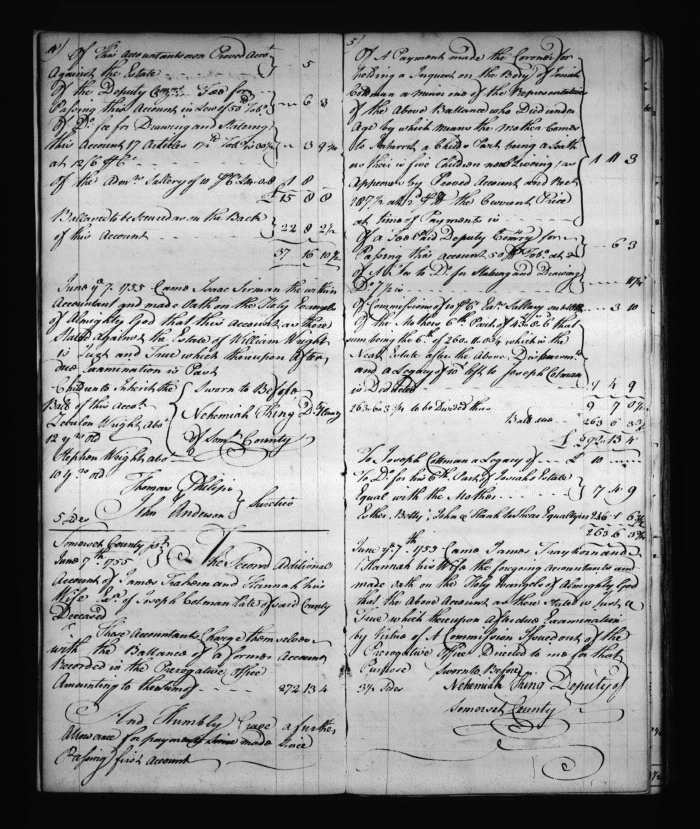 4)
Of this Accountants own Proved Accot.
Against the Estate } 5
Of the Deputy Comrys. Fee for
Passing this Account in Lew of 50 lb Tobo. } 6 3
Of Do. fee for Drawing and Stateing
this Account 17 Articles 17 1/2 lb Tobo.
at 12/6 Ct. } 3 9
Of the Admrs. Sallery of 10 Ct. on 1 8
£15 8 8
Ballance to be secured as on the Back
of this Account } 22 8 2 1/2
37 16 10 1/2
June ye. 7. 1755 Came Isaac Sirman the within
Accountant and made Oath on the Holy Evangels
of Almighty God that this Account as there
Stated Against the Estate of William Wright
is Just and True which thereupon After
due Examination is Past
Children to Inherit the
Ball. of this Accot.
Zebulon Wright, abt.
12 yrs. old
Stephen Wright, abt.
10 yrs. old
Sworn to Before
Nehemiah King D. Comry
Of Somt. County
Thomas Philips
John Anderson } Sureties
5 Sides
Somerset County sst.
June 7th. 1755 } The Second Additional
Account of James Trahern and Hannah his
Wife Exx. of Joseph Colman late of said County
Deceased
These Accountants Charge themselves
with the Ballance of a former Account
Recorded in the Prerogative Office
Amounting to the sum of 272 13 4
And Humbly Crave a further
Allowance for payments made Since
Passing first Account
5)
Of A Payment made the Coroner for
holding a Inquest on the Body of
a minr. one of the Representatives
of the Above Ballance who Died under
Age by which means the Mother Comes
to Inherit a Childs Part being a Sixth
as their is five Children now Living as
Appears by Proved Account and Rect.
187 1/2 at the Current Price
at time of Payments is } 1 11 3
Of a Fee Paid Deputy Comry for
Passing this Account 50 lb Tobo. at } 6 3
Of Do. to Do. for Stateing and Drawing
Do. 7 is 11 1/4
Of Commissions of 10 Ct. Exx. Sallery on 3 10
Of the Mothers 6th. Part of 43. 8. 6 that
sum being the 6th. of 260. 11. 0 3/4 which is the
Neat Estate after the Above Disbursmts.
and a Legacy of 10 left to Joseph Colman
is Deducted } 7 4 9
9 7 0 1/2
263. 6. 3 1/2 to be Divided thus
Ball. due 263 6 3 1/2
£272. 13 4
To Joseph Cottman a Legacy of £ 10
To Do. for his 6th. Part of Josiahs Estate
Equal with the Mother } 7 4 9
Esther, Betty, John & Hannah to share Equally in 246 1 6 1/2
263 6 3 1/2
June ye. 7th. 1755 Came James Trayhorn and
Hannah his Wife the forgoing accountants and
made Oath on the Holy Evangels of Almighty God
that the Above Account as there Stated is Just &
True which thereupon After due Examination
by Virtue of A Commission Issued out of the
Prerogative Office Directed to me for that
Purpose Sworn to Before
3 1/2 Sides Nehemiah King Deputy of
Somerset County